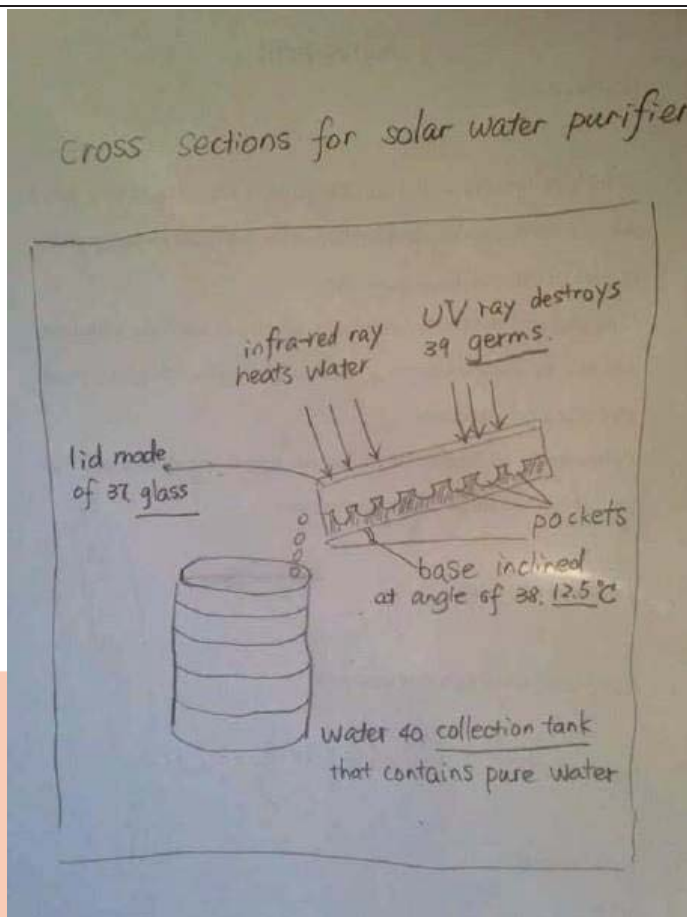 cross sections for solar water purifier
infra-red ray
heats water
UV ray destroys
39 germs.
lid made
of 37 glass
pockets
base inclined
at angle of 38. 12.5°C
water 40 collection tank
that contains pure water